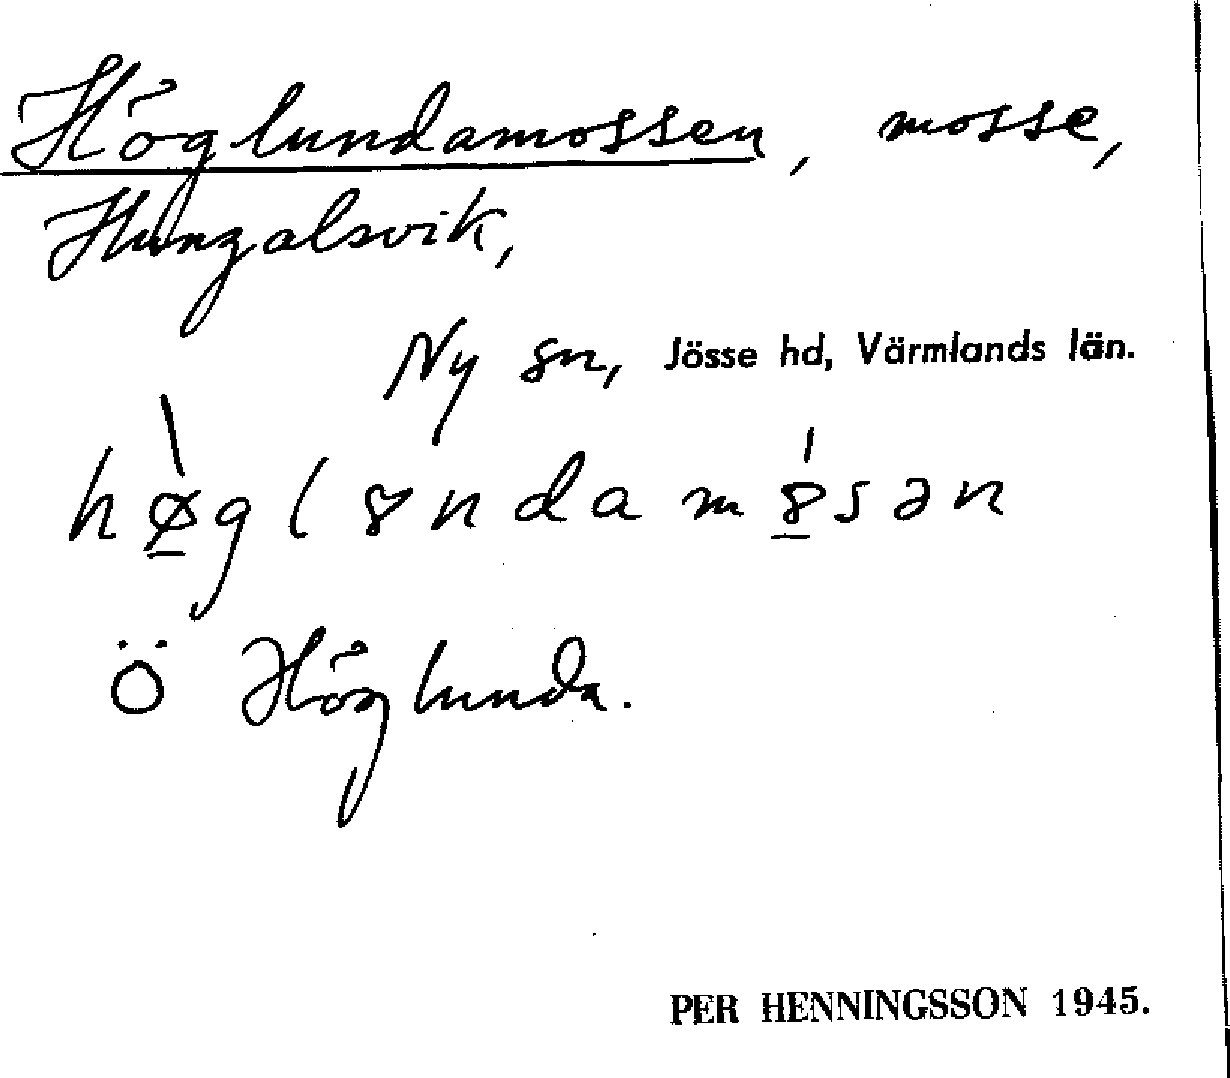 Höglundamossen, mosse,
Hungalsvik,
Ny sn, Jösse hd, Värmlands län.
hø̱̀glȣndamȣ̱́sən
Ö Höglunda.
PER HENNINGSSON 1945.